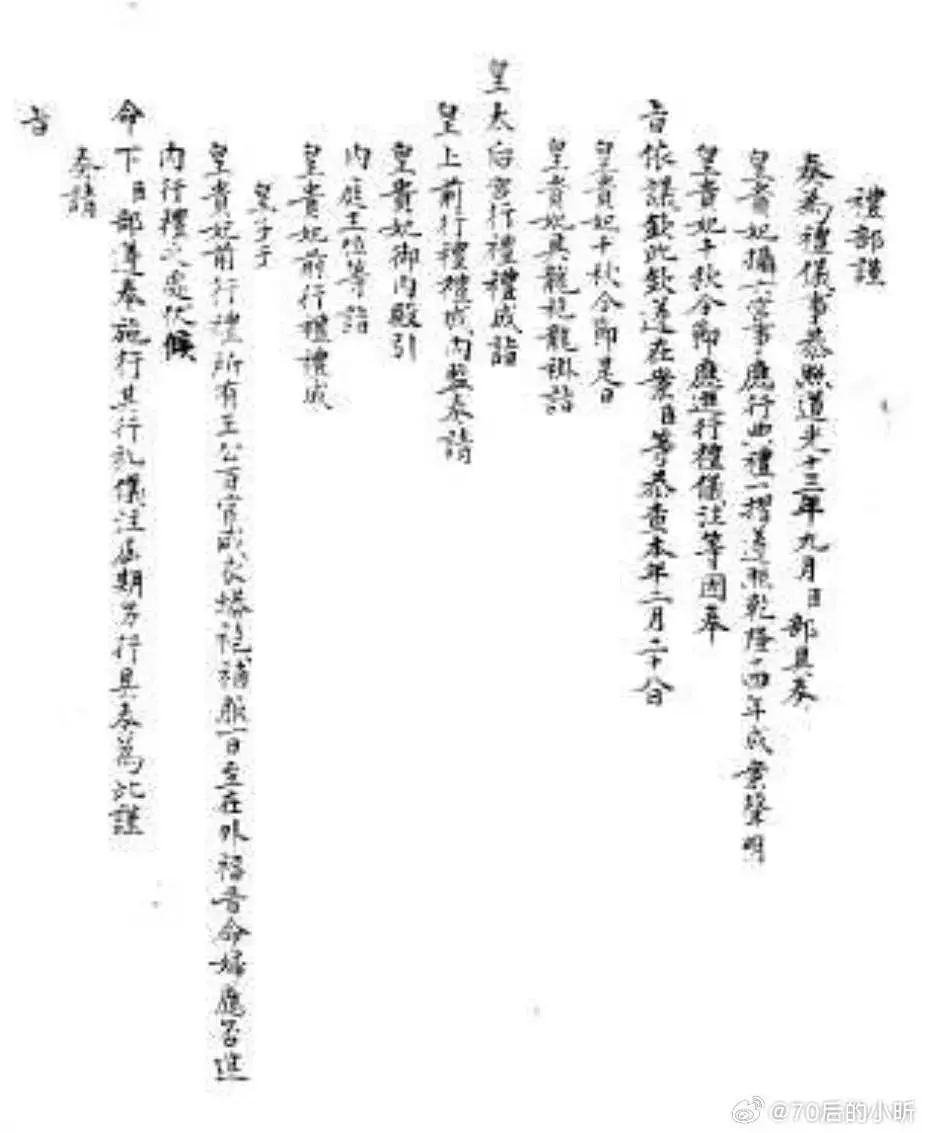 禮部謹
奏為禮儀事恭照道光十三年九月臣部具奏
皇貴妃攝六宮事應行典禮一摺遵照乾隆十四年成案聲明
皇貴妃千秋令節應進行禮儀注等因奉
旨依議欽此欽遵在案臣等恭查本年二月二十八日
皇貴妃千秋令節是日
皇貴妃具龍袍龍褂詣
皇太后宮行禮禮成詣
皇上前行禮禮成內監奏請
皇貴妃御內殿引
內庭主位等詣
皇貴妃前行禮禮成
皇子于
皇貴妃前行禮所有王公百官咸衣蟒袍補服一日至在外福晉命婦應否進
內行禮之處伏候
命下臣部遵奉施行其行礼儀注屆期另行具奏為此謹
奏請
旨
@70后的小昕